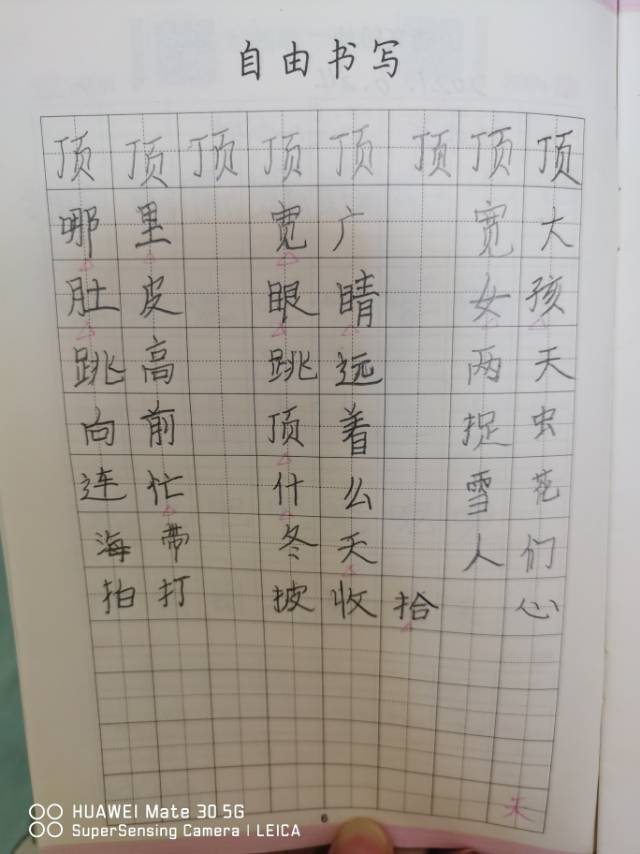 自由书写
顶顶顶顶顶顶顶顶
哪里 宽广 宽大
肚皮 眼睛 女孩
跳高 跳远 两天
向前 顶着 捉虫
连忙 什么 雪花
海带 冬天 人们
拍打 披 收拾 心
6
HUAWEI Mate 30 5G
SuperSensing Camera | LEICA